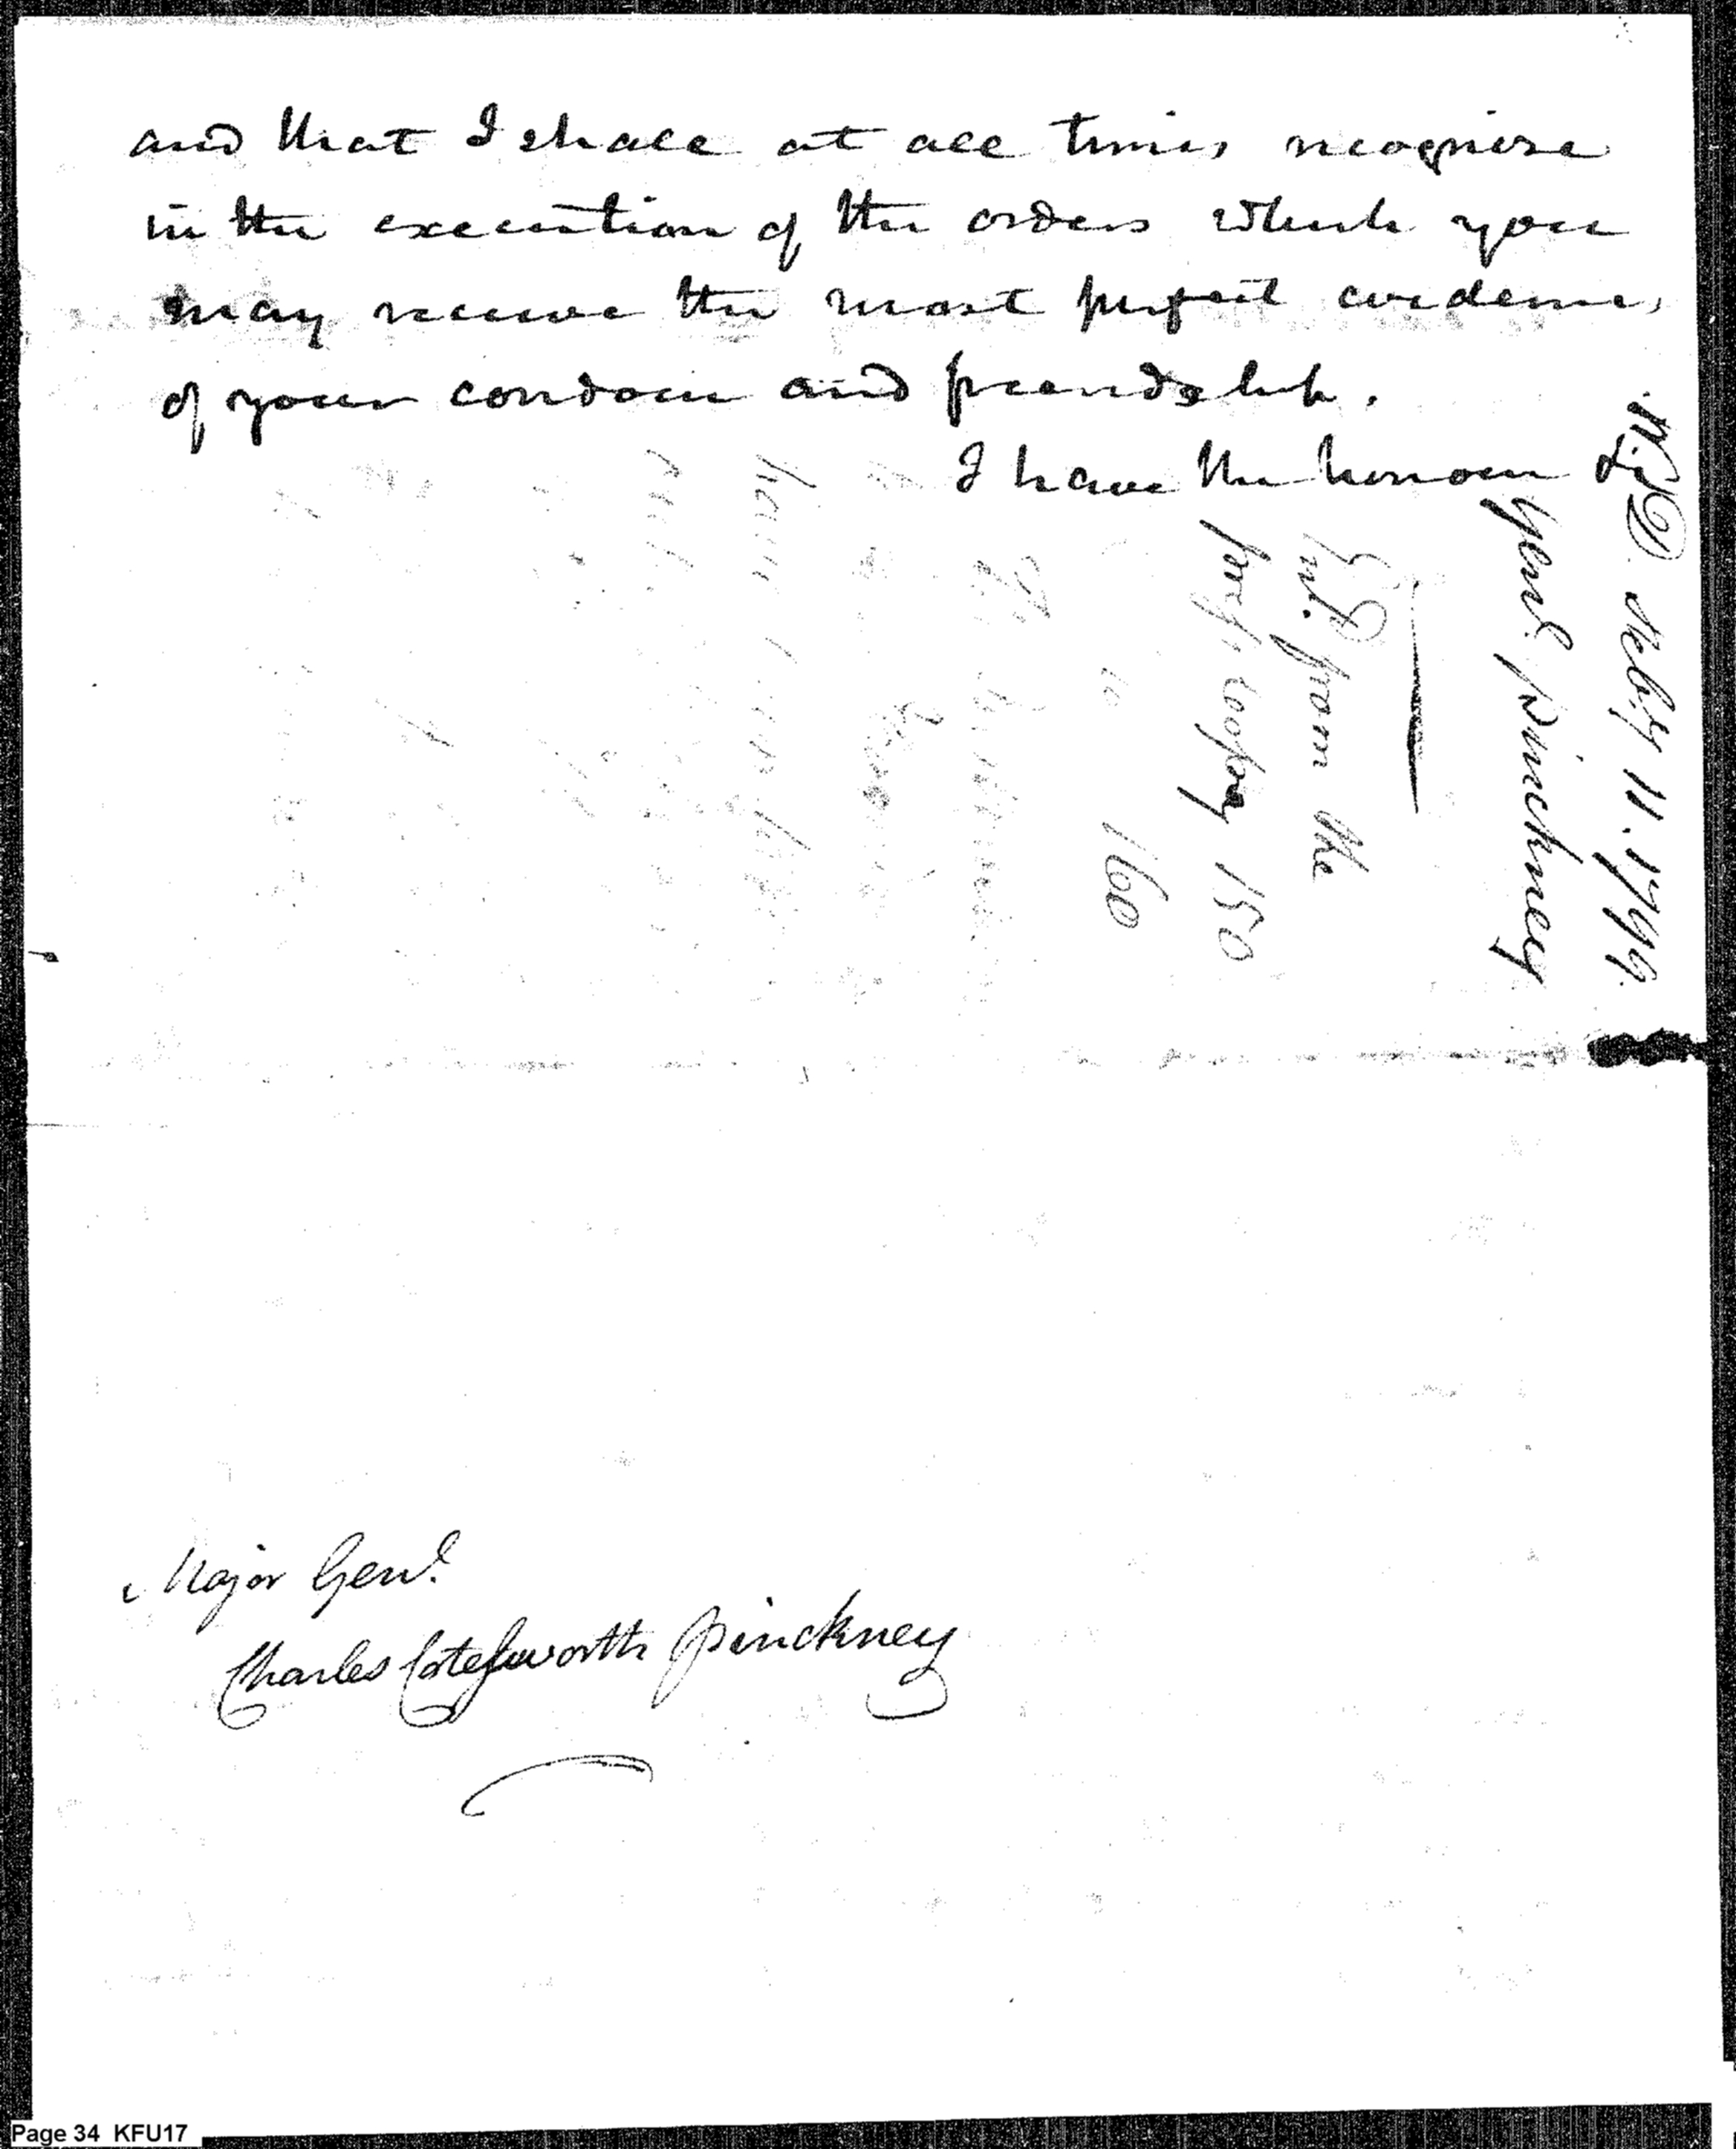 and that I shall at all times recognise
in the execution of the orders which you
may receive the most perfect evidences
of your candour and friendship.
I have the honour &
W. D. Feby 11. 1799.
Genl. Pinckney
from the
copy 150
to 160
Major Genl.
Charles Cotesworth Pinckney
Page 34 KFU17